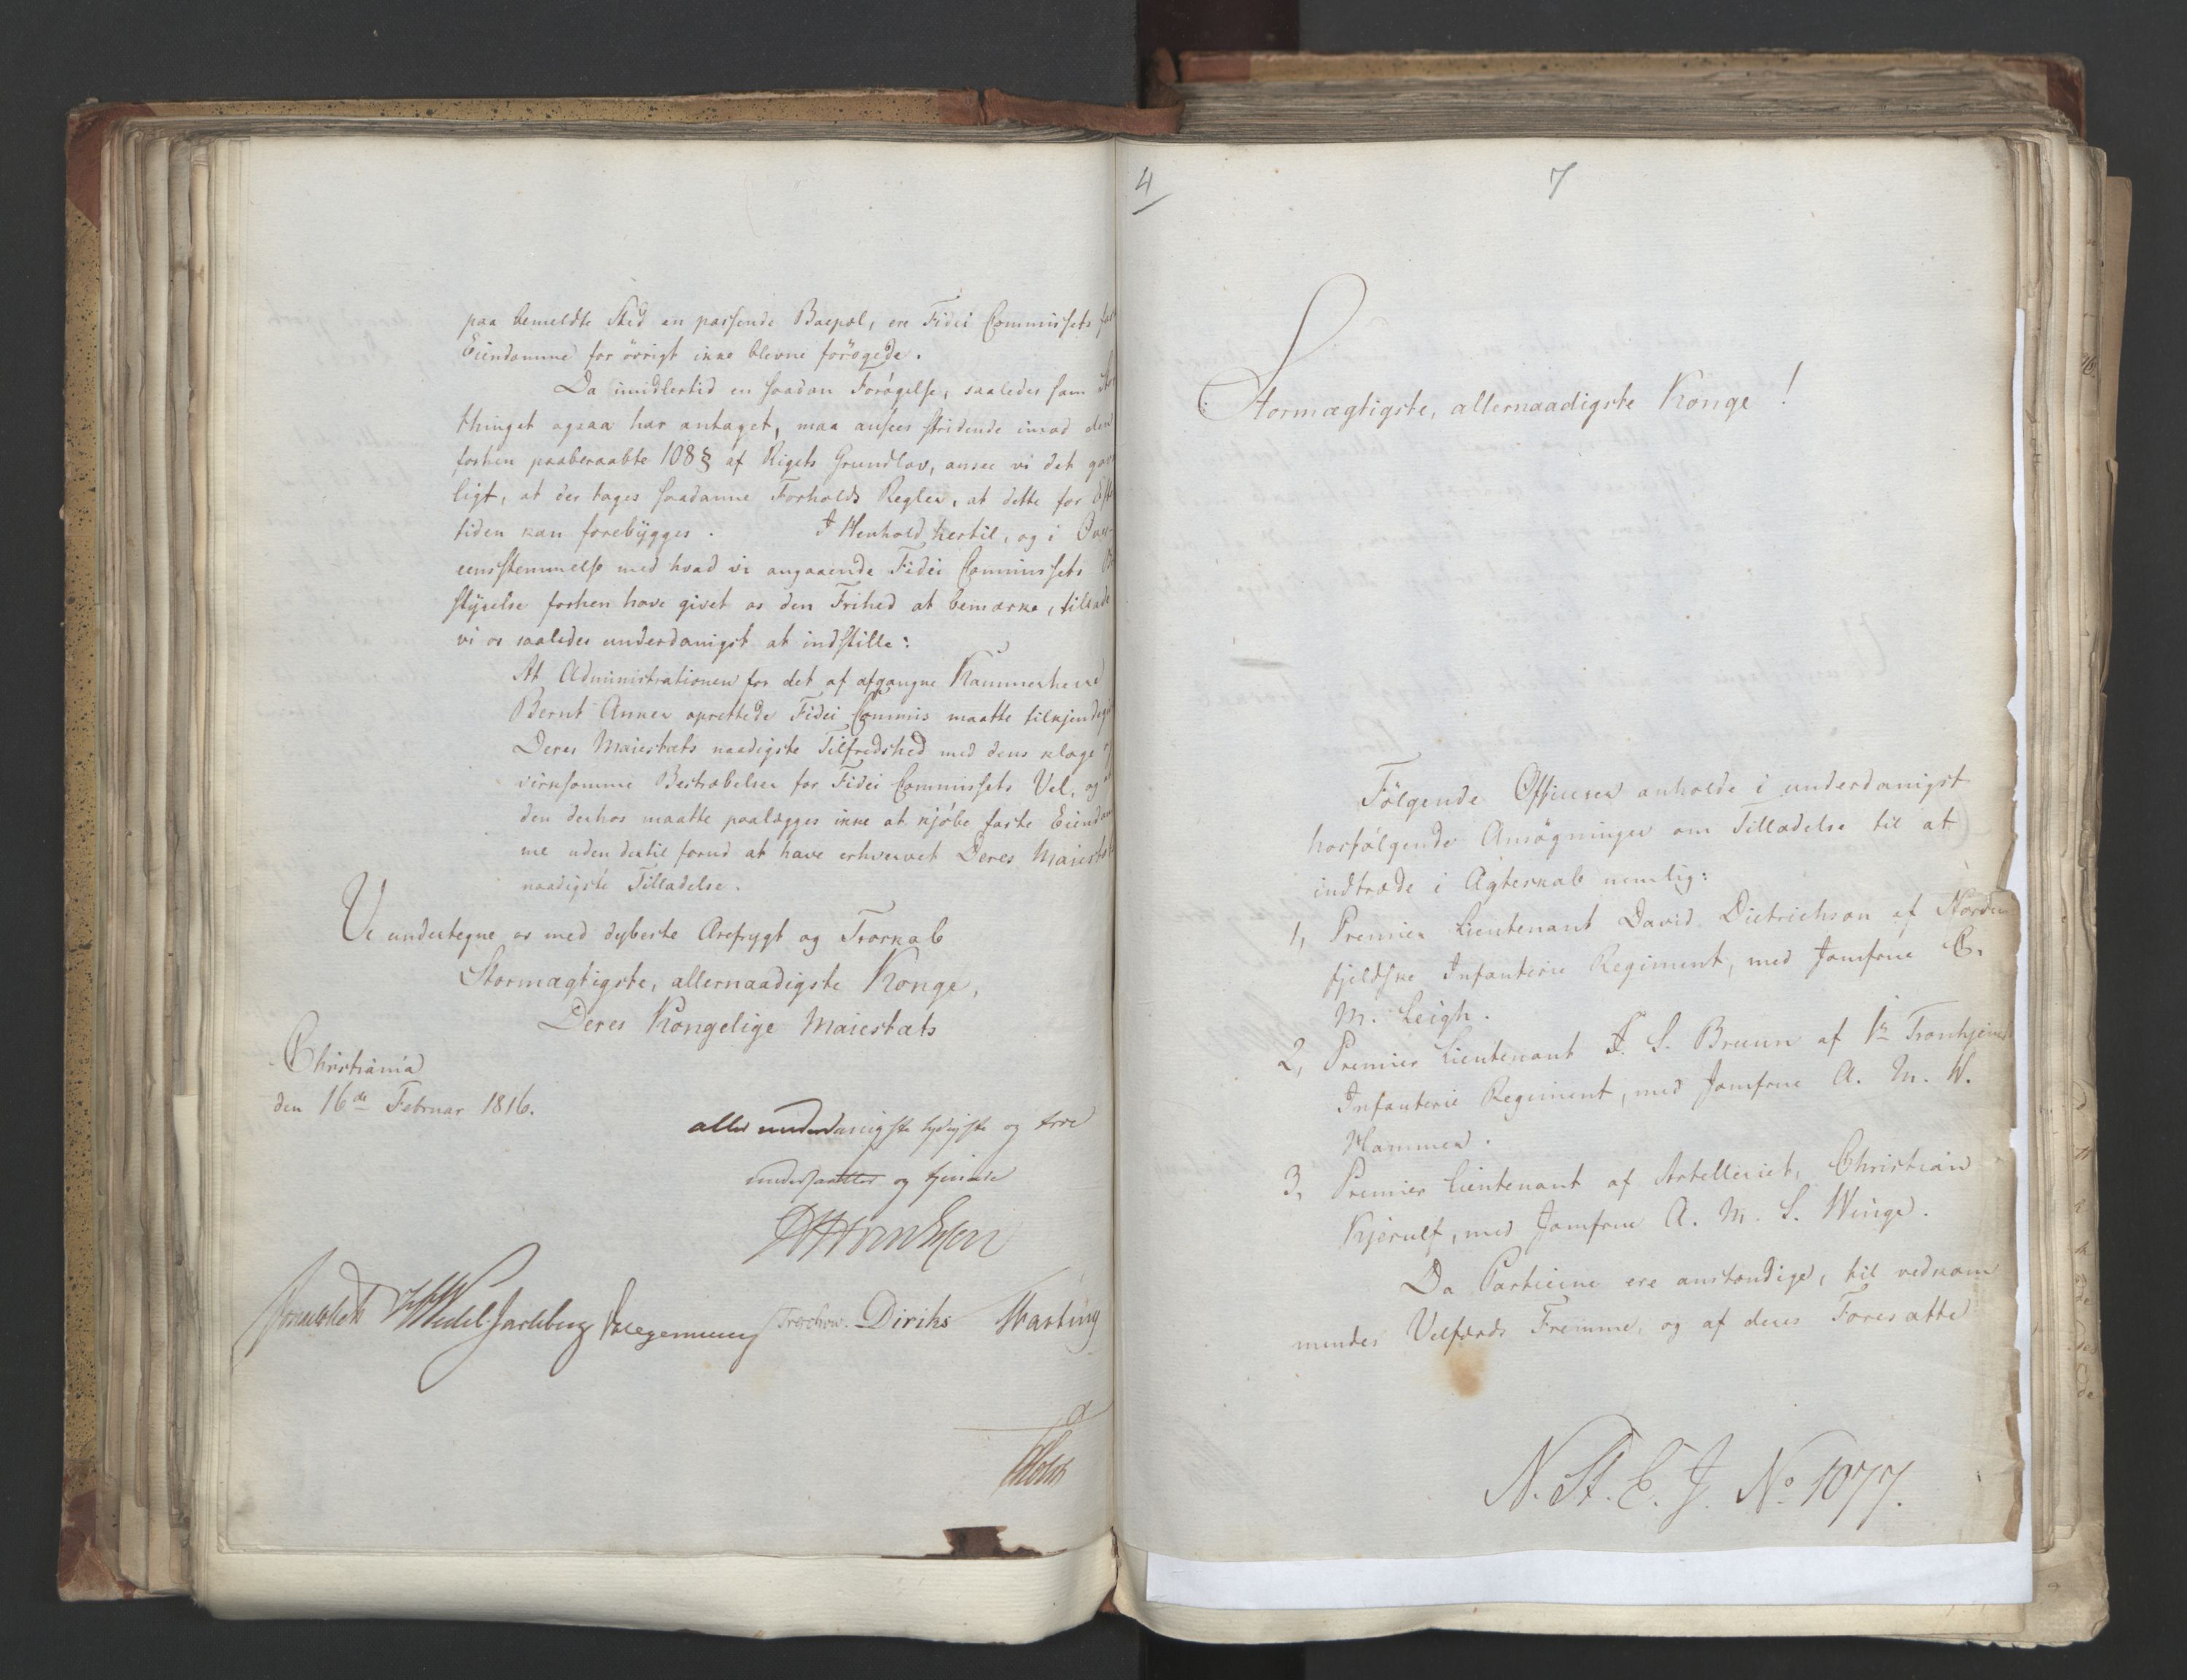 paa bemeldte Sted en passende Bagpæl, ere Fidei Commissets
Eiendomme for övrigt ikke blevne forögede.
Da imidlertid en saadan Forögelse, saaledes som
thinget ogsaa har antaget, maa ansees stridende imod den
forhen paaberaabte 108 § af Rigets Grundlov, ansee vi det
ligt, at der tages saadanne Forholds Regler, at dette for
tiden kan forebygges. I Henhold hertil, og i Over-
eensstemmelse med hvad vi angaaende Fidei Commissets
styrelse forhen have givet os den Frihed at bemærke, tillade
vi os saaledes underdanigst at indstille:
At Administrationen for det af afgangne Kammerherre
Bernt Anker oprettede Fidei Commis maatte tilkjendegi
Deres Maiestæts naadigste Tilfredshed med dens kloge
virksomme Bestræbelser for Fidei Commissets Vel, og
den derhos maatte paalægges ikke at kjöbe faste Eiendom
me uden dertil forud at have erhvervet Deres Maiestæts
naadigste Tilladelse.
Vi undertegne os med dybeste Ærefrygt og Troskab
Stormægtigste, allernaadigste Konge,
Deres Kongelige Maiestæts
Christiania
den 16de Februar 1816.
allerunderdanigste lydigste og troe
undersaatter og tjenere
Sommerfeldt Wedel Jarlsberg Krogemann Treschow. Diriks Hasting
Holst
4
7
Stormægtigste, allernaadigste Konge!
Fölgende Officerer anholde i underdanigst
hosfölgende Ansögninger om Tilladelse til at
indtræde i Ægteskab nemlig:
1, Premier Lieutenant David Dietrichson af Norden
fjeldske Infanterie Regiment, med Jomfrue C.
M. Leigh.
2, Premier Lieutenant F. S. Bruun af 1te Tronhjemske
Infanterie Regiment, med Jomfrue A. M. W.
Hammer.
3, Premier Lieutenant af Artelleriet, Christian
Kjerulf, med Jomfrue A. M. S. Winge.
Da Partierne ere anstændige, til vedkom
mendes Velfærds Fremme, og af deres Foresatte
N. St. C. J. No 1077.